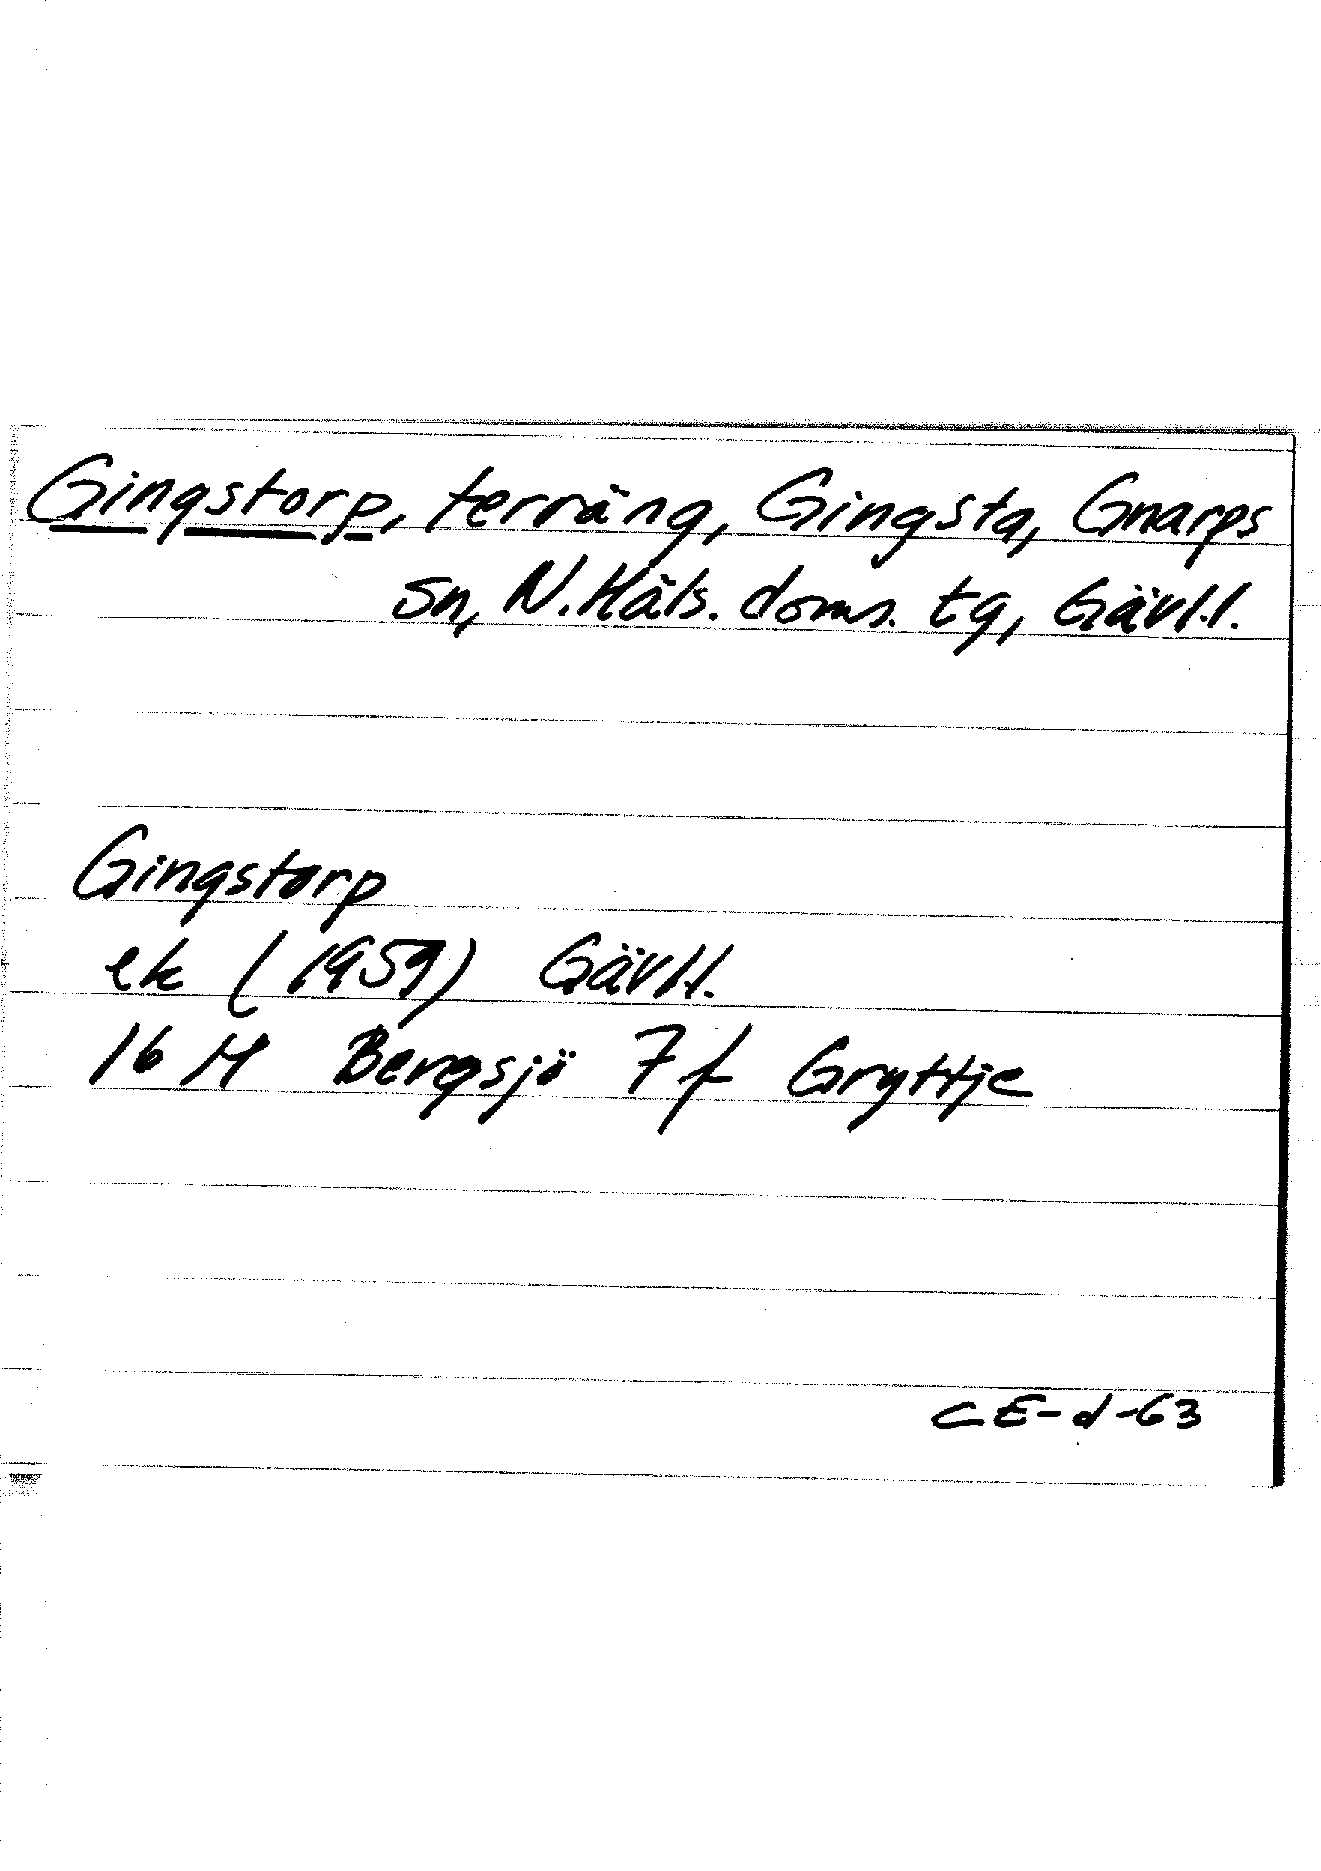 Gingstorp, terräng, Gingsta, Gnarps
sn, N. Häls. doms. tg, Gävl.l.
Gingstorp
ek (1959) Gävl.l.
16 H Bergsjö 7 f Gryttje
CE-d-63